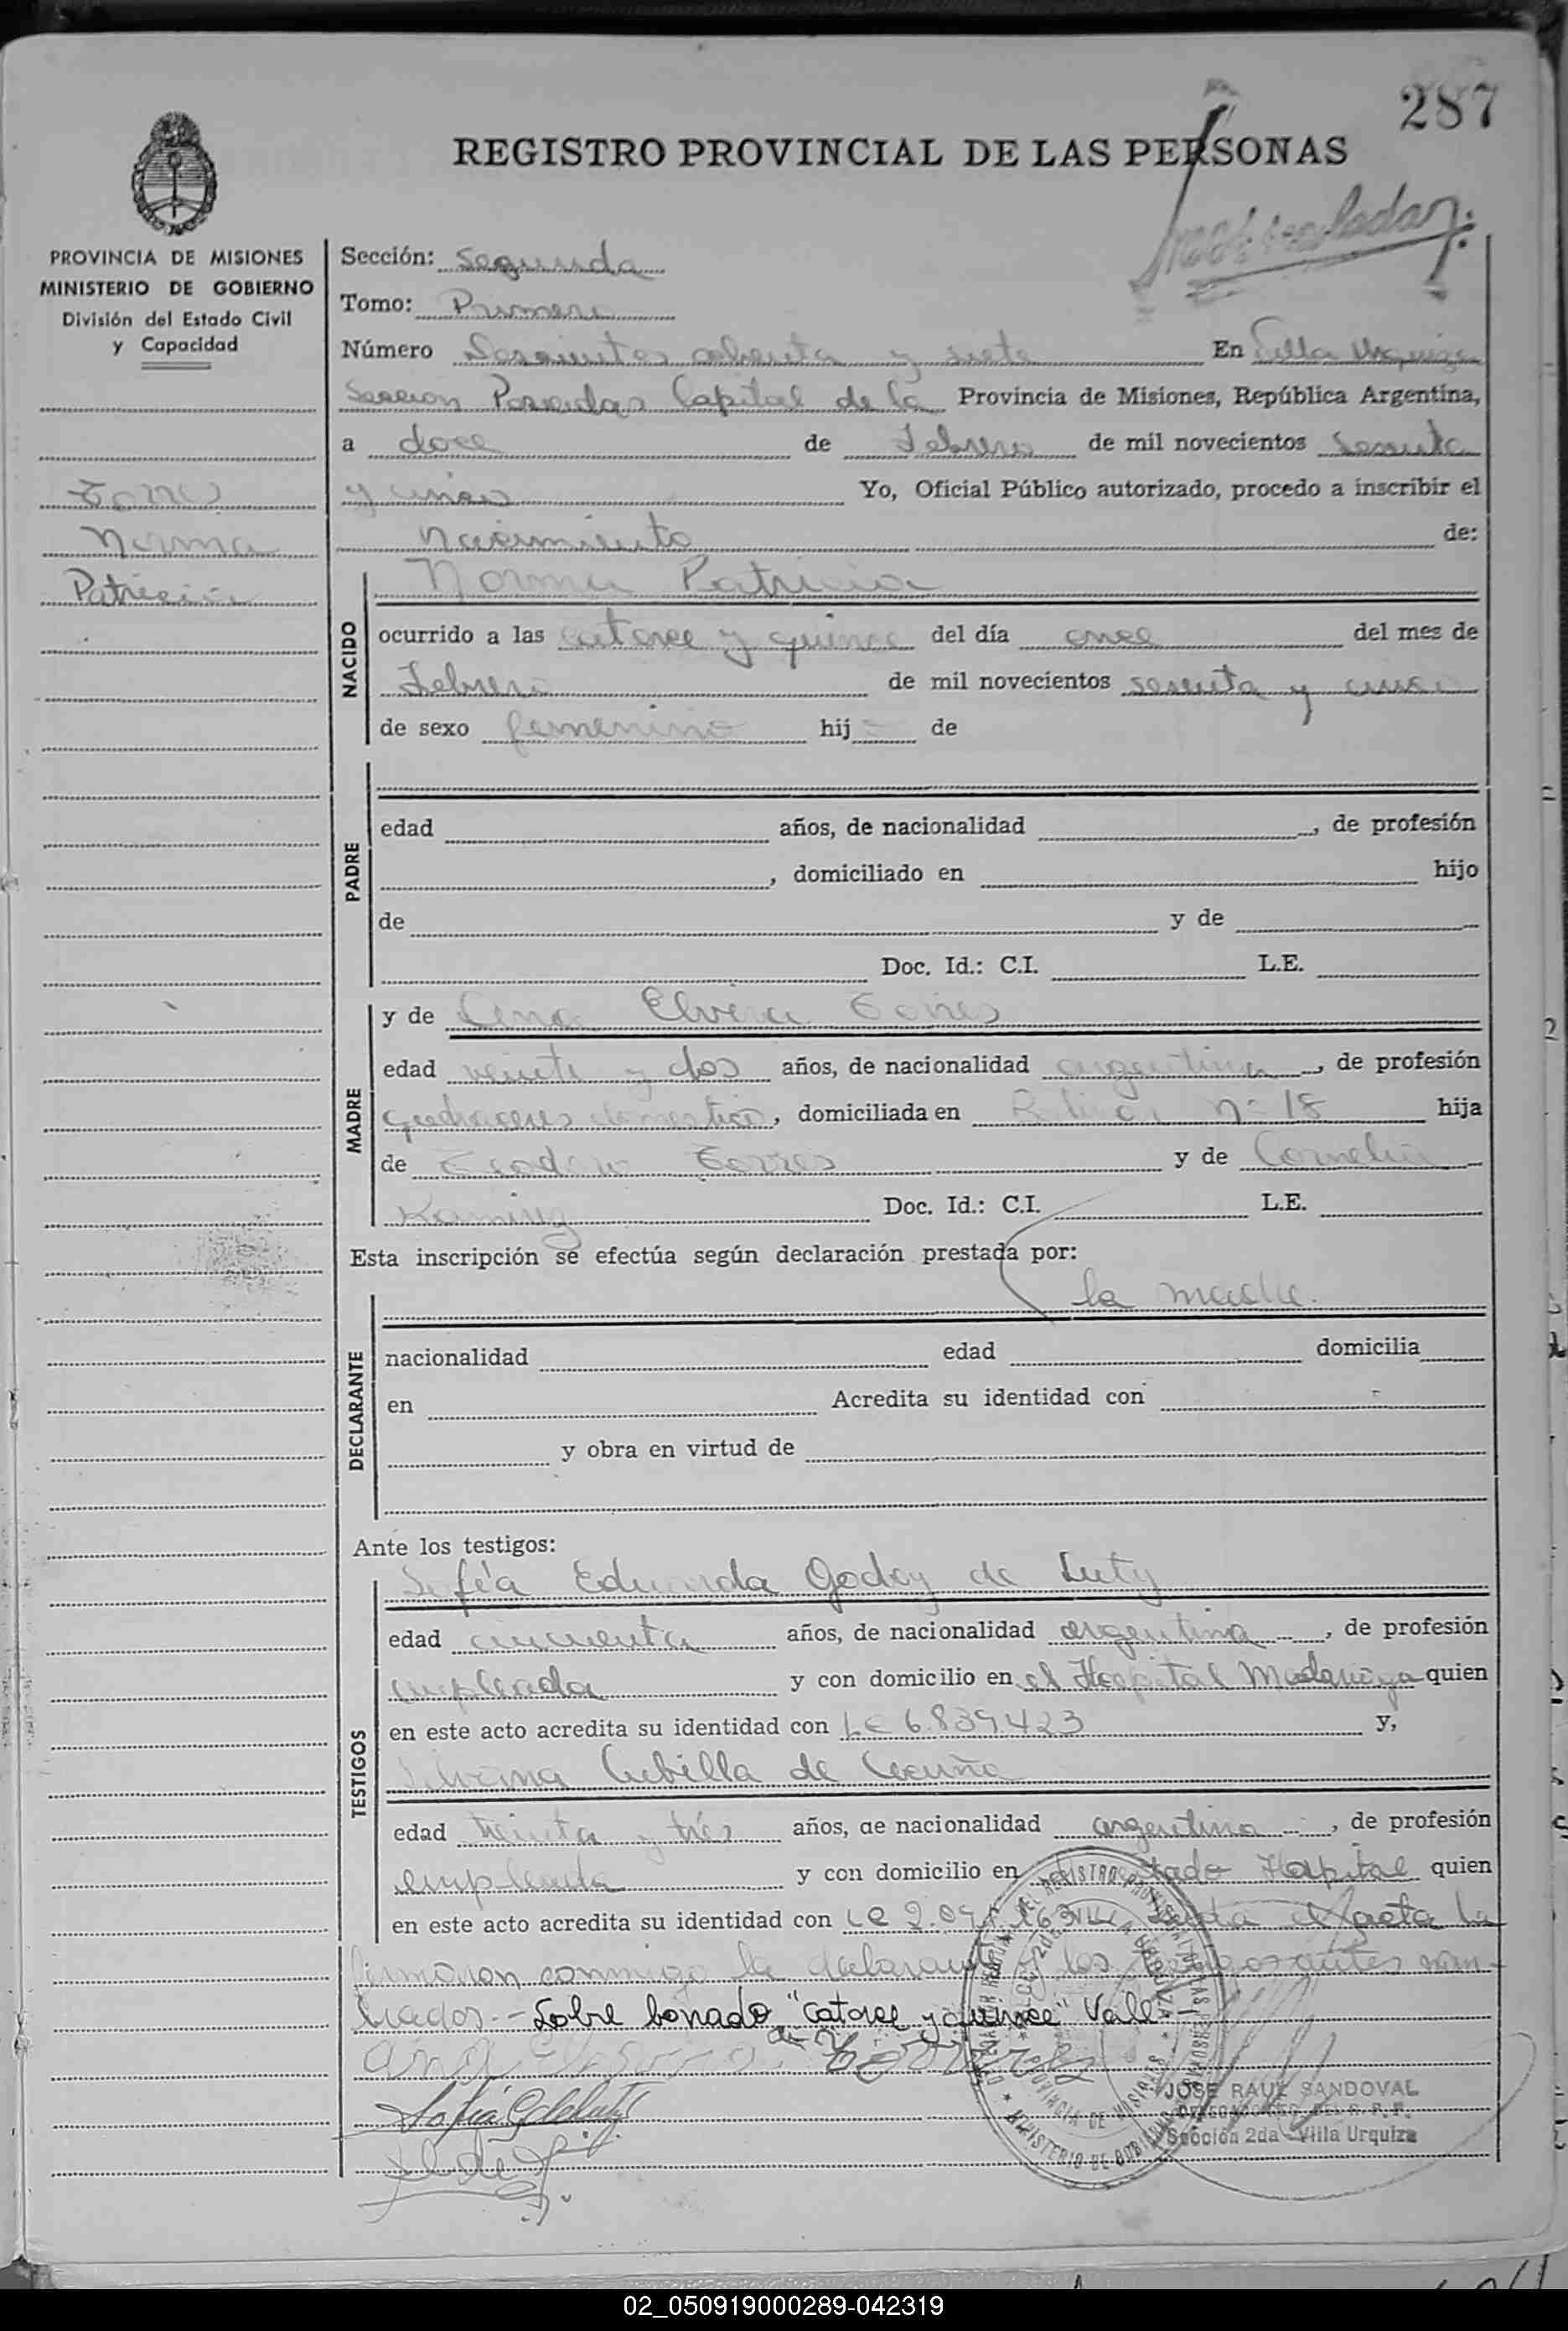 287
REGISTRO PROVINCIAL DE LAS PERSONAS
PROVINCIA DE MISIONES
MINISTERIO DE GOBIERNO
División del Estado Civil
y Capacidad
Torres
Norma
Patricia
Sección: Segunda
Tomo: Primero
Número Doscientos ochenta y siete En Villa Urquiza
Sección Posadas Capital de la Provincia de Misiones, República Argentina,
a doce de Febrero de mil novecientos sesenta
y cinco Yo, Oficial Público autorizado, procedo a inscribir el
nacimiento de:
NACIDO
Norma Patricia
ocurrido a las catorce y quince del día once del mes de
Febrero de mil novecientos sesenta y cinco
de sexo femenino hij de
PADRE
edad años, de nacionalidad , de profesión
, domiciliado en hijo
de y de
Doc. Id.: C.I. L.E.
MADRE
y de Ana Elvira Torres
edad veinte y dos años, de nacionalidad argentina , de profesión
quehaceres domestico, domiciliada en nº 18 hija
de Teodoro Torres y de Cornelia
Ramirez Doc. Id.: C.I. L.E.
Esta inscripción se efectúa según declaración prestada por:
la madre.
DECLARANTE
nacionalidad edad domicilia
en Acredita su identidad con
y obra en virtud de
Ante los testigos:
TESTIGOS
Sofía Eduarda Godoy de Luty
edad cincuenta años, de nacionalidad argentina , de profesión
empleada y con domicilio en el Hospital Madariaga quien
en este acto acredita su identidad con LC 6.839.423 y,
Cubilla de Acuña
edad treinta y tres años, de nacionalidad argentina , de profesión
empleada y con domicilio en citado Hospital quien
en este acto acredita su identidad con LC Leida el Acta la
firmaron conmigo la declarante y los testigos antes nom-
brados.- Sobre borrado "catorce y quince" Vale
JOSE RAUL SANDOVAL
Sección 2da - Villa Urquiza
02_050919000289-042319